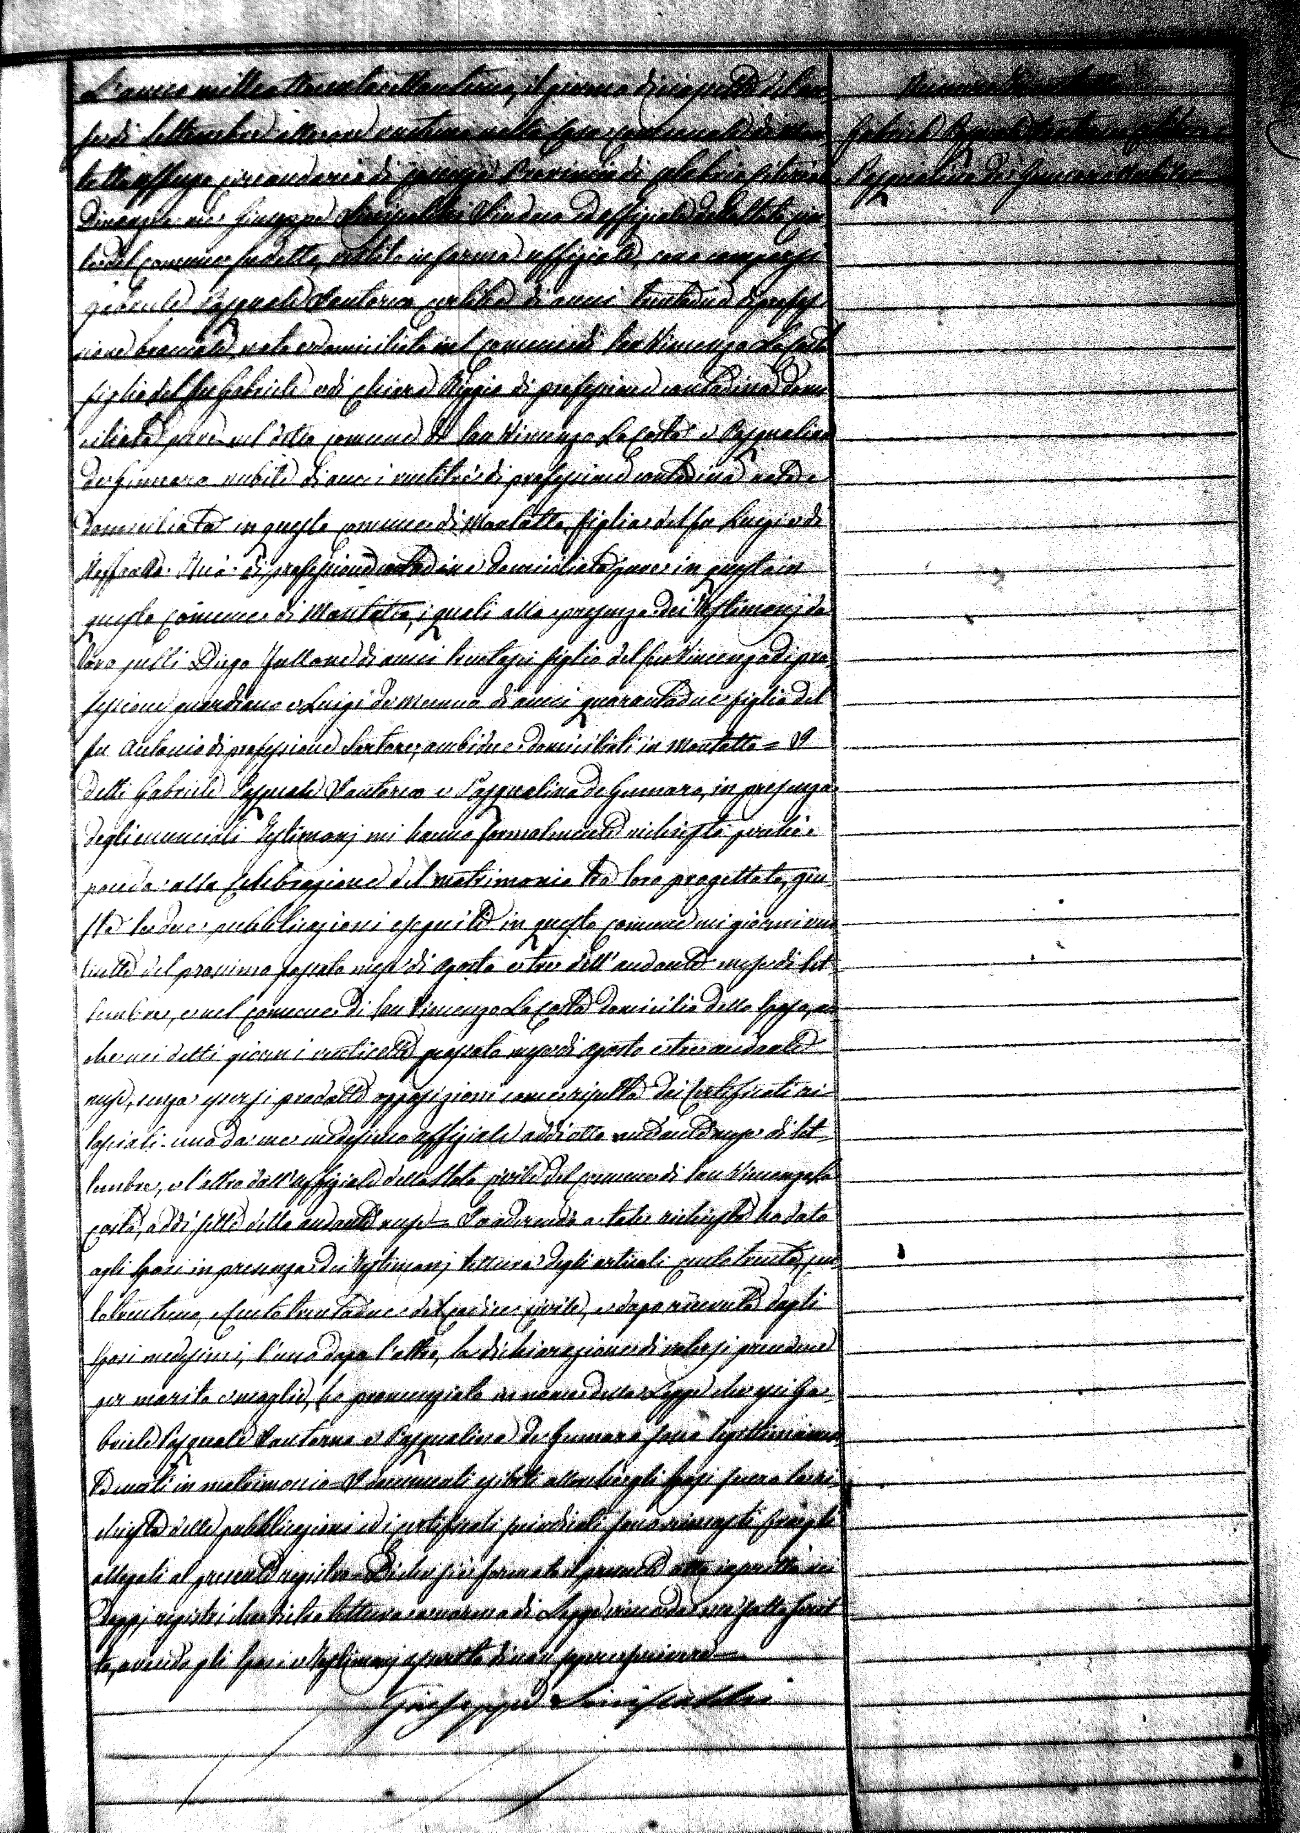 L'anno mille ottocento settantuno, il giorno diciassette del me
se di Settembre alle ore ventuna nella Casa Comunale di Mon
talto Uffugo circondario di Cosenza Provincia di Calabria Citeriore
Dinanzi a me Giuseppe Siniscalchi Sindaco ed uffiziale dello Stato civi
le del Comune sudetto, vestito in forma uffiziale, sono comparsi
Gabriele Pasquale Santoro celibe di anni trentadue di profes
sione bracciale, nato e domiciliato nel comune di San Vincenzo La Costa
figlio del fu Gabriele e di Chiara di professione contadina domi
ciliata pure nel detto comune di San Vincenzo La Costa e Pasqualina
de Gennaro nubile di anni ventitrè di professione contadina nata e
domiciliata in questo comune di Montalto figlia del fu Luigi e di
Raffaella di professione contadina domiciliata pure in questo in
questo Comune di Montalto, i quali alla presenza dei Testimonj da
loro scelti Diego Fullone di anni figlio del fu Vincenzo di pro
fessione guardiano e Luigi de Menna di anni quarantadue figlio del
fu Antonio di professione Sartore, ambidue domiciliati in Montalto = I
detti Gabriele Pasquale Santoro e Pasqualina de Gennaro, in presenza
degli enunciati Testimonj mi hanno formalmente richiesto perchè
proceda alla Celebrazione del matrimonio tra loro progettato, giu
sta le due pubblicazioni eseguite in questo comune nei giorni ven
tisette del prossimo passato mese di Agosto e tre dell'andante mese di Set
tembre, e nel Comune di San Vincenzo La Costa domicilio dello Sposo, an
che nei detti giorni ventisette passato mese di Agosto e tre andante
mese, senza essersi prodotte opposizioni come risulta dai Certificati ri
lasciati uno da me medesimo uffiziale addì otto andante mese di Set
tembre, e l'altro dall'Uffiziale dello Stato Civile del comune di San Vincenzo la
Costa, addì sette dello andante mese = Io aderendo a tale richiesta ho dato
agli Sposi in presenza dei Testimonj lettura degli articoli centotrenta, cen
totrentuno, e Centotrentadue del Codice Civile, e dopo ricevuta dagli
Sposi medesimi, l'uno dopo l'altro, la dichiarazione di volersi prendere
per marito e moglie, ho pronunziato in nome della Legge che essi Ga
briele Pasquale Santoro e Pasqualina de Gennaro sono legittimamen
te uniti in matrimonio = I documenti esibiti allorchè gli Sposi fecero la ri
chiesta delle pubblicazioni ed i certificati sono rimasti
allegati al presente registro = Di che si è formato il presente atto inscritto nei
doppj registri che dietro lettura a norma di Legge viene da me sottoscrit
to, avendo gli Sposi e Testimonj asserito di non sapere scrivere =
Giuseppe Siniscalchi
Gabriele Pasquale Santoro celibe e
Pasqualina de Gennaro nubile